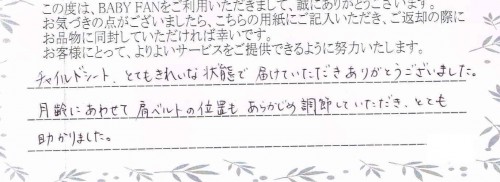 この度は、BABY FANをご利用いただきまして、誠にありがとうございます。
お気づきの点がございましたら、こちらの用紙にご記入いただき、ご返却の際に
お品物に同封していただければ幸いです。
お客様にとって、よりよいサービスをご提供できるように努力いたします。
チャイルドシート、とてもきれいな状態で届けていただきありがとうございました。
月齢にあわせて肩ベルトの位置もあらかじめ調節していただき、とても
助かりました。